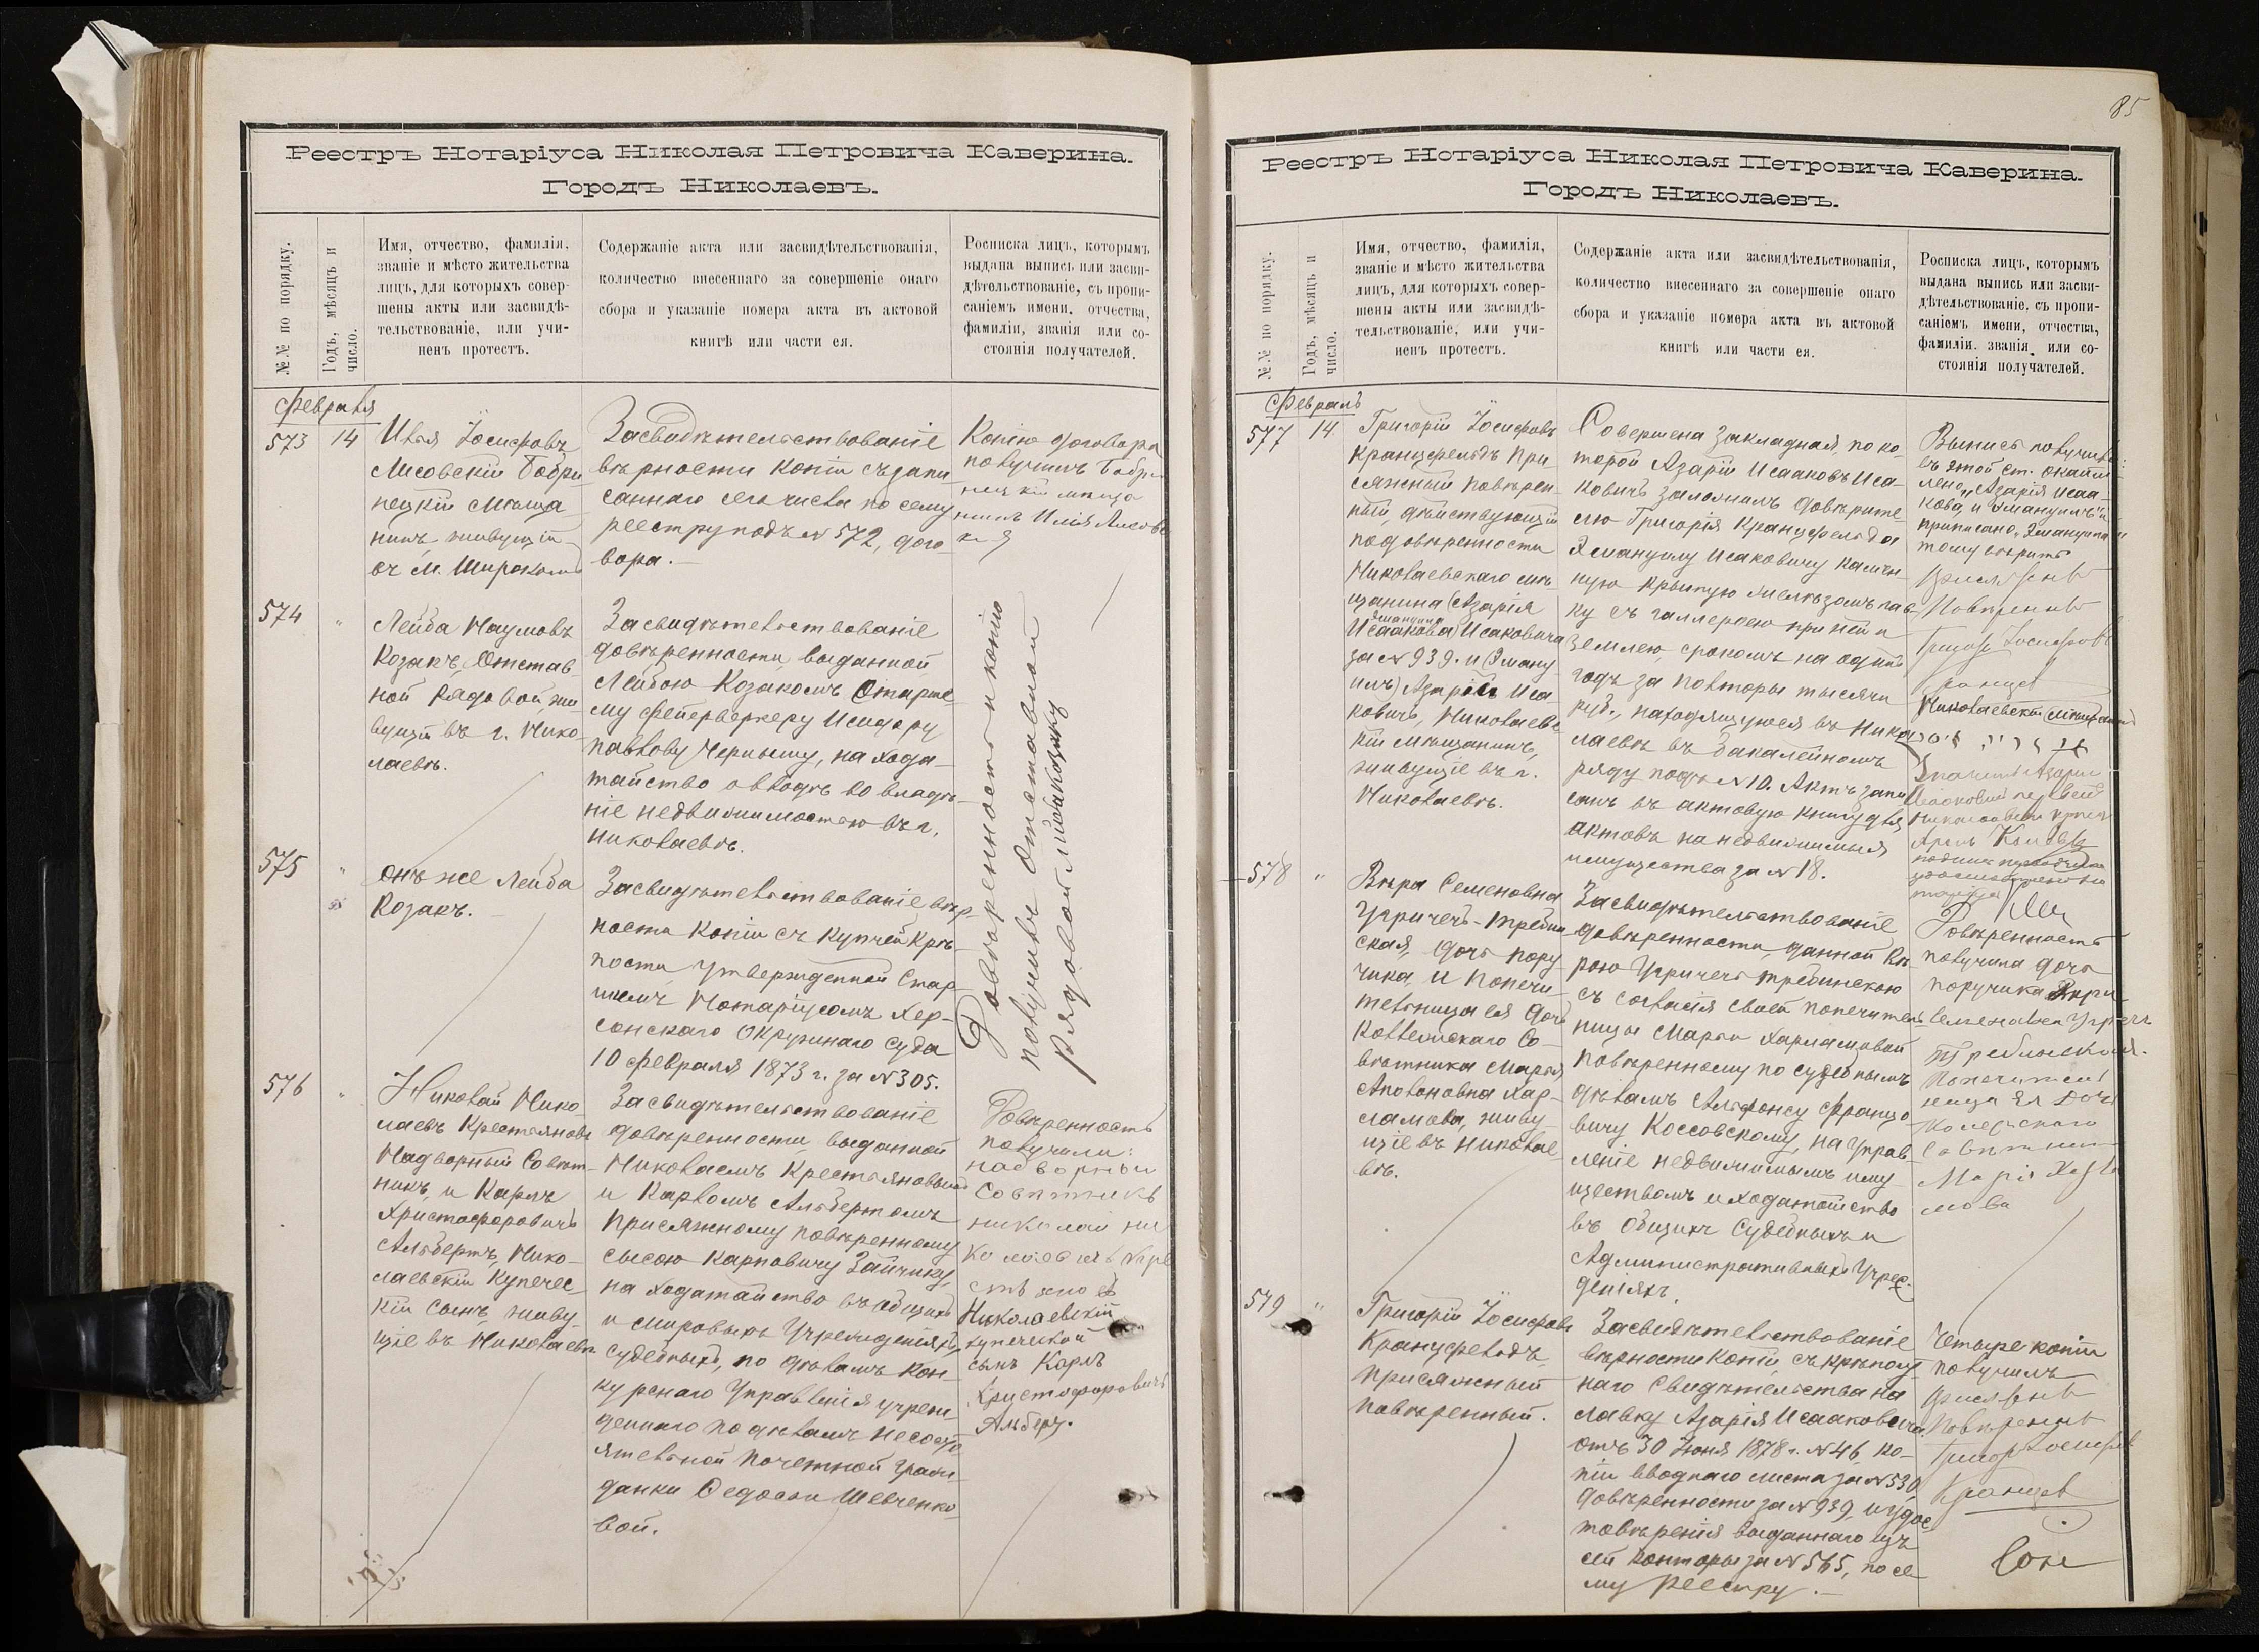 Реестръ Нотаріуса Николая Петровича Каверина.
Городъ Николаевъ.
№№ по порядку.
Годъ, мѣсяцъ и
число.
Имя, отчество, фамилія,
званіе и мѣсто жительства
лицъ, для которыхъ совер-
шены акты или засвидѣ-
тельствованіе, или учи-
ненъ протестъ.
Содержаніе акта или засвидѣтельствованія,
количество внесеннаго за совершеніе онаго
сбора и указаніе номера акта въ актовой
книгѣ или части ея.
Росписка лицъ, которымъ
выдана выпись или засви-
дѣтельствованіе, съ пропи-
саніемъ имени, отчества,
фамиліи, званія или со-
стоянія получателей.
Февраля
573
14
Илья Іосифовъ
Лисовскій Бобри
нецкій мѣща
нинъ, живущій
въ м. Широкомъ
Засвидѣтельствованіе
вѣрности копіи съ запи
саннаго сего числа по сему
реестру подъ № 572, дого
вора.
Копію договора
получилъ Бобри
нецкій мѣща
нинъ Илія Лисовс
кій
574
"
Лейба Наумовъ
Козакъ, Отстав
ной рядовой, жи
вущій въ г. Нико
лаевѣ.
Засвидѣтельствованіе
довѣренности, выданной
Лейбою Козакомъ Старше
му фейерверкеру Исидору
Павлову Чернышу, на хода
тайство о вводѣ во владѣ
ніе недвижимостью въ г.
Николаевѣ.
Довѣренность и копію
получилъ Отставной
Рядовой Лейба Козакъ
575
"
онъ же Лейба
Козакъ.
Засвидѣтельствованіе вѣр-
ности копіи съ купчей крѣ
пости, утвержденной Стар-
шимъ Нотаріусомъ Хер-
сонскаго Окружнаго Суда
10 февраля 1873 г. за № 305.
576
"
Николай Нико
лаевъ Крестьяновъ
Надворный Совѣт-
никъ, и Карлъ
Христофоровичъ
Альбертъ, Нико-
лаевскій Купечес
кій сынъ, живу
щіе въ Николаевѣ
Засвидѣтельствованіе
довѣренности, выданной
Николаемъ Крестьяновымъ
и Карломъ Альбертомъ
присяжному повѣренному
Сысою Карповичу Зайчику,
на ходатайство въ общихъ
и мировыхъ учрежденіяхъ
судебныхъ, по дѣламъ кон-
курснаго Управленія учреж-
деннаго по дѣламъ несосто
ятельной почетной граж-
данки Ѳедосьи Шевченко
вой.
Довѣренность
получили:
надворный
Совѣтникъ
николай ни
колаевичъ Кре
стьяновъ
Николаевскій
купеческій
сынъ Карлъ
Христофоровичъ
Альбертъ.
85
Реестръ Нотаріуса Николая Петровича Каверина.
Городъ Николаевъ.
№№ по порядку.
Годъ, мѣсяцъ и
число.
Имя, отчество, фамилія,
званіе и мѣсто жительства
лицъ, для которыхъ совер-
шены акты или засвидѣ-
тельствованіе, или учи-
ненъ протестъ.
Содержаніе акта или засвидѣтельствованія,
количество внесеннаго за совершеніе онаго
сбора и указаніе номера акта въ актовой
книгѣ или части ея.
Росписка лицъ, которымъ
выдана выпись или засви-
дѣтельствованіе, съ пропи-
саніемъ имени, отчества,
фамиліи, званія или со-
стоянія получателей.
Февраль
577
14
Григорій Іосифовъ
Кранцфельдъ При
сяжный повѣрен-
ный, дѣйствующій
по довѣренности
Николаевскаго мѣ
щанина (Азарія
Эмануила
Исаакова) Исаковича
за № 939. и (Эману
илъ) Азарій Иса
ковичъ, Николаевс
кій мѣщанинъ,
живущіе въ г.
Николаевѣ.
Совершена закладная, по ко-
торой Азарій Исааковъ Иса-
ковичъ заложилъ довѣрите-
лю Григорія Кранцфельда
Эмануилу Исаковичу камен-
ную крытую желѣзомъ лав-
ку съ галлереею при ней и
землею, срокомъ на одинъ
годъ за полторы тысячи
руб., находящуюся въ Нико
лаевѣ въ бакалейномъ
ряду подъ № 10. Актъ запи
санъ въ актовую книгу для
актовъ на недвижимыя
имущества за № 18.
Выпись получили:
въ этой ст. окайм
лено, "Азарія Исаа-
кова, и Эмануилъ" и
приписано, "Эмануила"
тому вѣрить
Присяжный
Повѣренный
Григорій Іосифовъ
Николаевскій мѣщанинъ
578
"
Вѣра Семеновна
Угричичъ-Требин
ская, дочь пору
чика, и попечи-
тельница ея дочь
Коллежскаго Со-
вѣтника Марія
Аполоновна Хар-
ламова, живу
щіе въ Николае
вѣ.
Засвидѣтельствованіе
довѣренности, данной Вѣ-
рою Угричичъ Требинскою
съ согласія своей попечитель
ницы Маріи Харламовой
повѣренному по судебнымъ
дѣламъ Альфонсу Францо
вичу Коссовскому, на управ-
леніе недвижимымъ иму
ществомъ и ходатайство
въ общихъ судебныхъ и
Административныхъ Учреж-
деніяхъ.
Довѣренность
получила дочь
поручика Вѣра
Семеновна Угричичъ
Требинская.
Попечитель
ница Ея дочь
Колежскаго
Совѣтника
Марія Харла
мова
579
"
Григорій Іосифовъ
Кранцфельдъ,
присяжный
повѣренный.
Засвидѣтельствованіе
вѣрности копій, съ крѣпост
наго свидѣтельства на
лавку Азарія Исааковича
отъ 30 Іюня 1878 г. № 46, ко-
піи вводнаго листа за № 530
довѣренности за № 939, и удос
товѣренія выданнаго изъ
сей конторы за № 565, по се
му реестру.
Четыре копіи
получилъ
Присяжный
Повѣренный
Григорій Іосифовъ